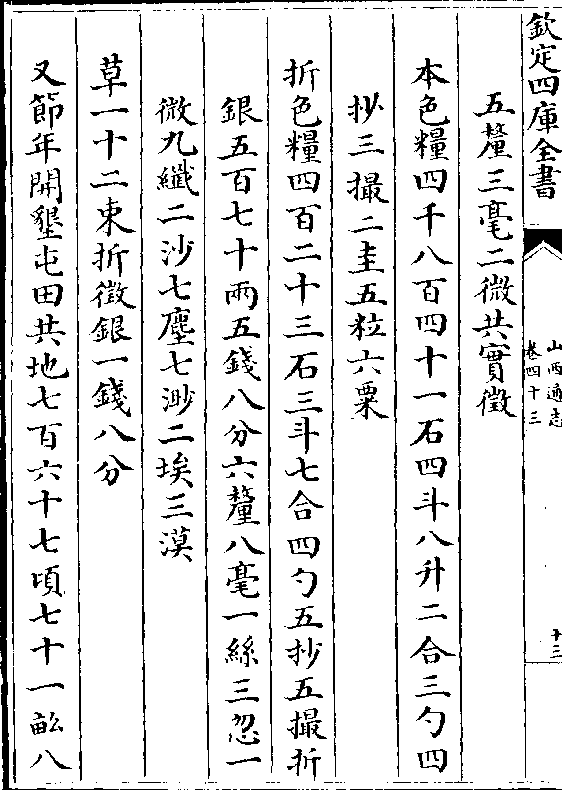 欽定四庫全書
山西通志
卷四十三
十三
五釐三毫二微共實徵
本色糧四千八百四十一石四斗八升二合三勺四
抄三撮二圭五粒六粟
折色糧四百二十三石三斗七合四勺五抄五撮折
銀五百七十兩五錢八分六釐八毫一絲三忽一
微九纖二沙七塵七渺二埃三漠
草一十二束折徵銀一錢八分
又節年開墾屯田共地七百六十七頃七十一畝八